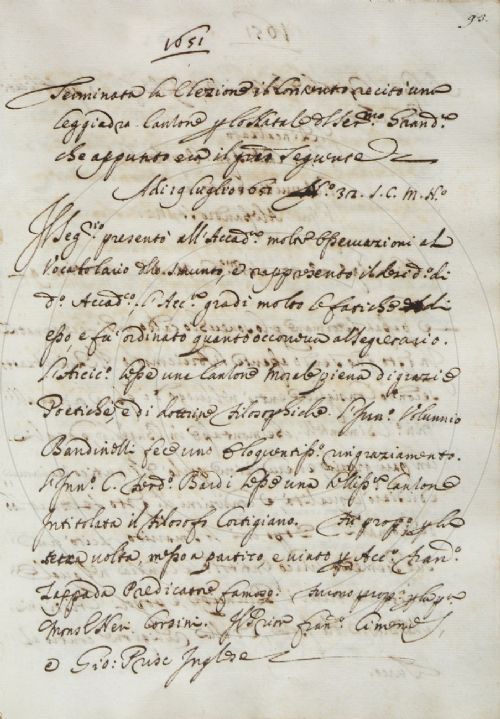 93.
1651
Terminata la Elezione il Consunto recitò una
leggiadra Canzone p lo Natale del Ser.mo Grand.
che appunto era il giorno seguente
Adi 19 luglio 1651 N.o 32. S. C. M. N.o
Il Seg.rio presentò all'Accad.a molte osservazioni al
Vocabolario dello Smunto, e rappresentò il desid.o di
d.o Accad.o. L'Acc.a gradì molto le fatiche di
esso e fu ordinato quanto occorreva al Segretario.
lesse una Canzone Morale piena di grazie
Poetiche, e di dottrine filosofiche. L'Inn.o Volunnio
Bandinelli fece uno eloquentiss.o ringraziamento.
L'Inn.o C. Ferd.o Bardi lesse una belliss.a Canzone
Intitolata il filosofo Cortigiano. Fu prop.o p la
terza volta, messo a partito, e vinto p Acc.o Fran.o
Zappada Predicatore famoso. Furono prop. p la p.a
Mons. Neri Corsini. Il Prior Fran.o Cimenes,
e Gio: Inglese